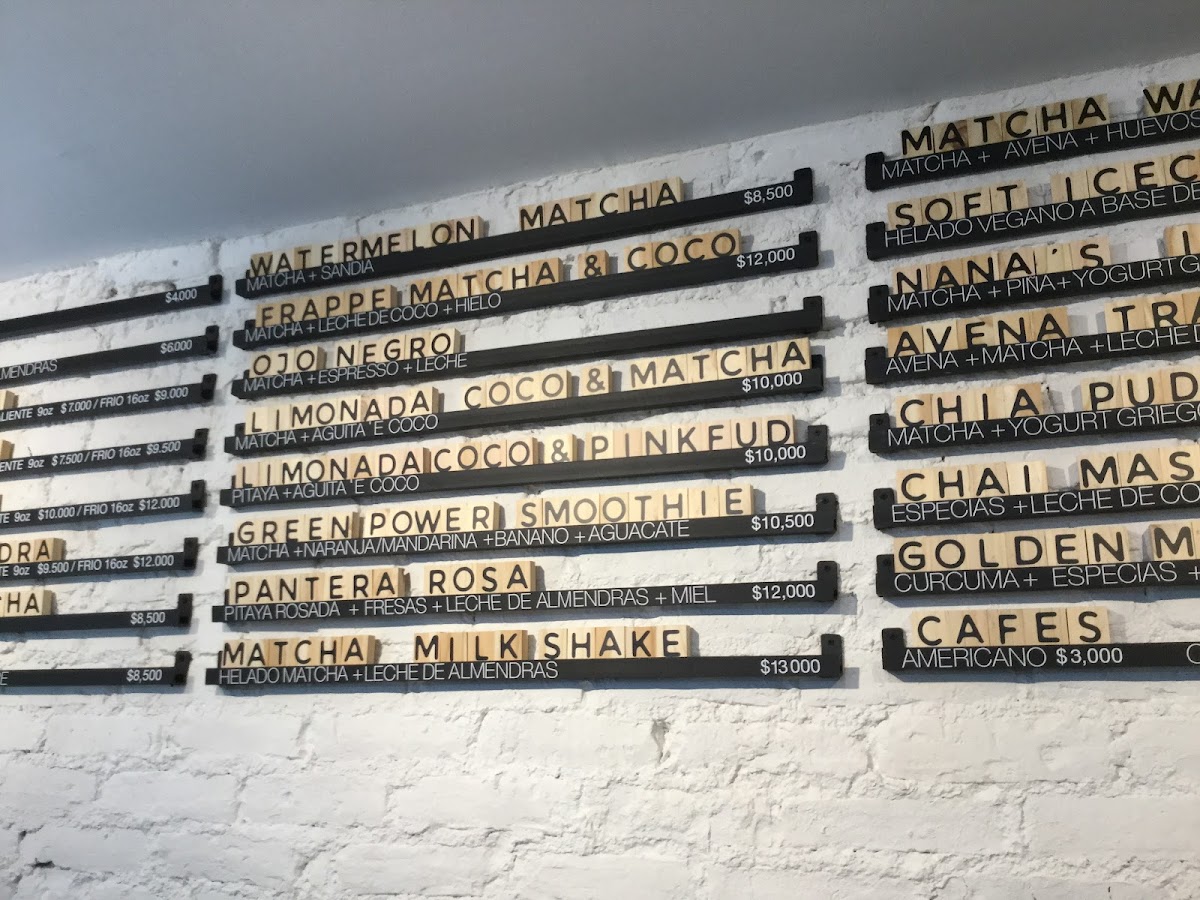 $4,000
$6.000
9oz $7.000 / FRIO 16oz $9.000
9oz $7.500 / FRIO 16oz $9.500
9oz $10.000 / FRIO 16oz $12.000
9oz $9.500 / FRIO 16oz $12.000
$8,500
$8,500
WATERMELON MATCHA
MATCHA + SANDIA $8,500
FRAPPE MATCHA & COCO
MATCHA + LECHE DE COCO + HIELO $12,000
OJO NEGRO
MATCHA + ESPRESSO + LECHE
LIMONADA COCO & MATCHA
MATCHA + AGUITA 'E COCO $10,000
LIMONADA COCO & PINKFUD
PITAYA + AGUITA 'E COCO $10,000
GREEN POWER SMOOTHIE
MATCHA + NARANJA/MANDARINA + BANANO + AGUACATE $10,500
PANTERA ROSA
PITAYA ROSADA + FRESAS + LECHE DE ALMENDRAS + MIEL $12,000
MATCHA MILKSHAKE
HELADO MATCHA + LECHE DE ALMENDRAS $13000
MATCHA
MATCHA + AVENA + HUEVOS
SOFT
HELADO VEGANO A BASE DE
NANA'S
MATCHA + PIÑA + YOGURT
AVENA
AVENA + MATCHA + LECHE
CHIA
MATCHA + YOGURT
CHAI
ESPECIAS + LECHE DE
GOLDEN
CURCUMA + ESPECIAS +
CAFES
AMERICANO $3,000